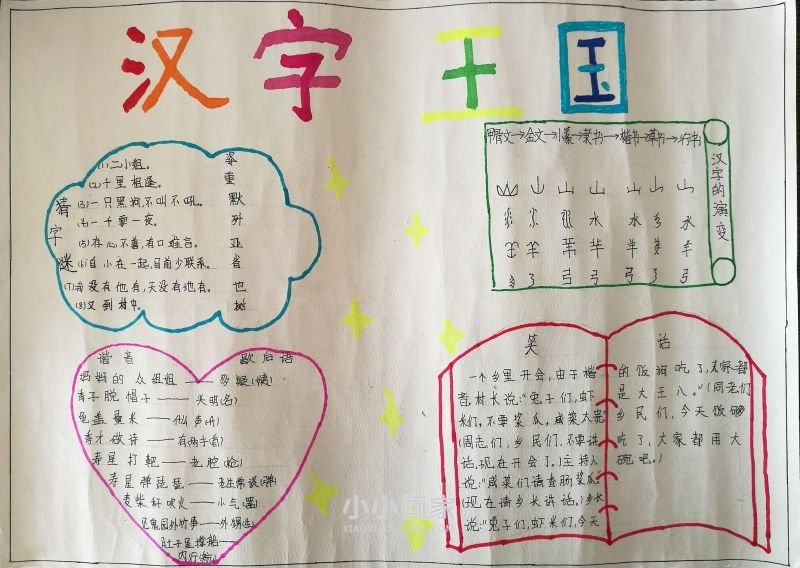 汉字王国
猜字谜
(1)二小姐。 姿
(2)千里相逢。 重
(3)一只黑狗,不叫不吼。 默
(4)一千零一夜。 歼
(5)有心不善,有口难言。 亚
(6)自小在一起,目前少联系。 省
(7)你没有他有,天没有地有。 也
(8)又到村中。 树
甲骨文→金文→小篆→隶书→楷书→草书→行书
汉字的演变
山 山 山 山 山
水 水 水
羊 羊 羊 羊
弓 弓 弓 弓
谐音 歇后语
妈妈的众姐姐——多疑(姨)
孝子脱帽子——失明(名)
鱼盖量米——什么声(升)
秀才做诗——有两手(首)
寿星打靶——老腔(枪)
寿星弹琵琶——老生常谈(弹)
麦柴杆吹火——小气(器)
外甥(生)
肚子里撑船——
内行(航)
笑话
一个乡里开会,由于楷
音,村长说:"兔子们,虾
米们,不要浆瓜,咸菜太贵"
(同志们,乡民们,不要讲
话,现在开会了。)主持人
说:"咸菜们请香肠浆瓜"
(现在请乡长讲话。)乡长
说:"兔子们,虾米们,今天
的饭狗吃了,大家都
是大王八。"(同老们
乡民们,今天饭够
吃了,大家都用大
碗吧。)
小小画家